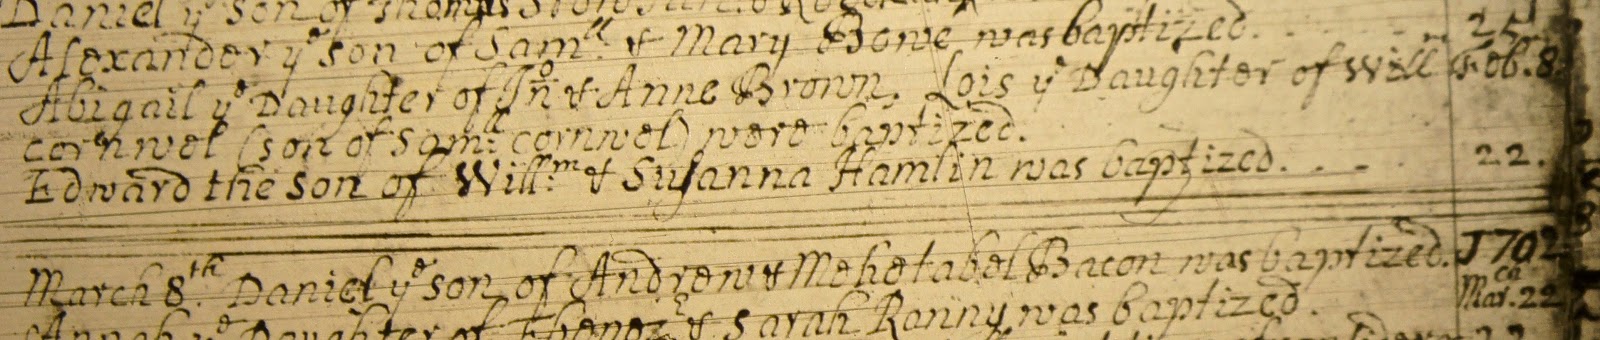 Daniel yͤ son of Thomas
Alexander yͤ son of Samˡˡ & Mary Bowe was baptized. 25
Abigail yͤ Daughter of Jnͦ & Anne Brown. Lois yͤ Daughter of Will Feb. 8.
cornwel (son of Samˡˡ cornwel) were baptized.
Edward the son of Will:ᵐ & Susanna Hamlin was baptized. . . - 22.
March 8.ᵗʰ Daniel yͤ son of Andrew & Mehetabel Bacon was baptized. 1702
Annah yͤ Daughter of Ebenezʳ & Sarah Ranny was baptized. Mar. 22